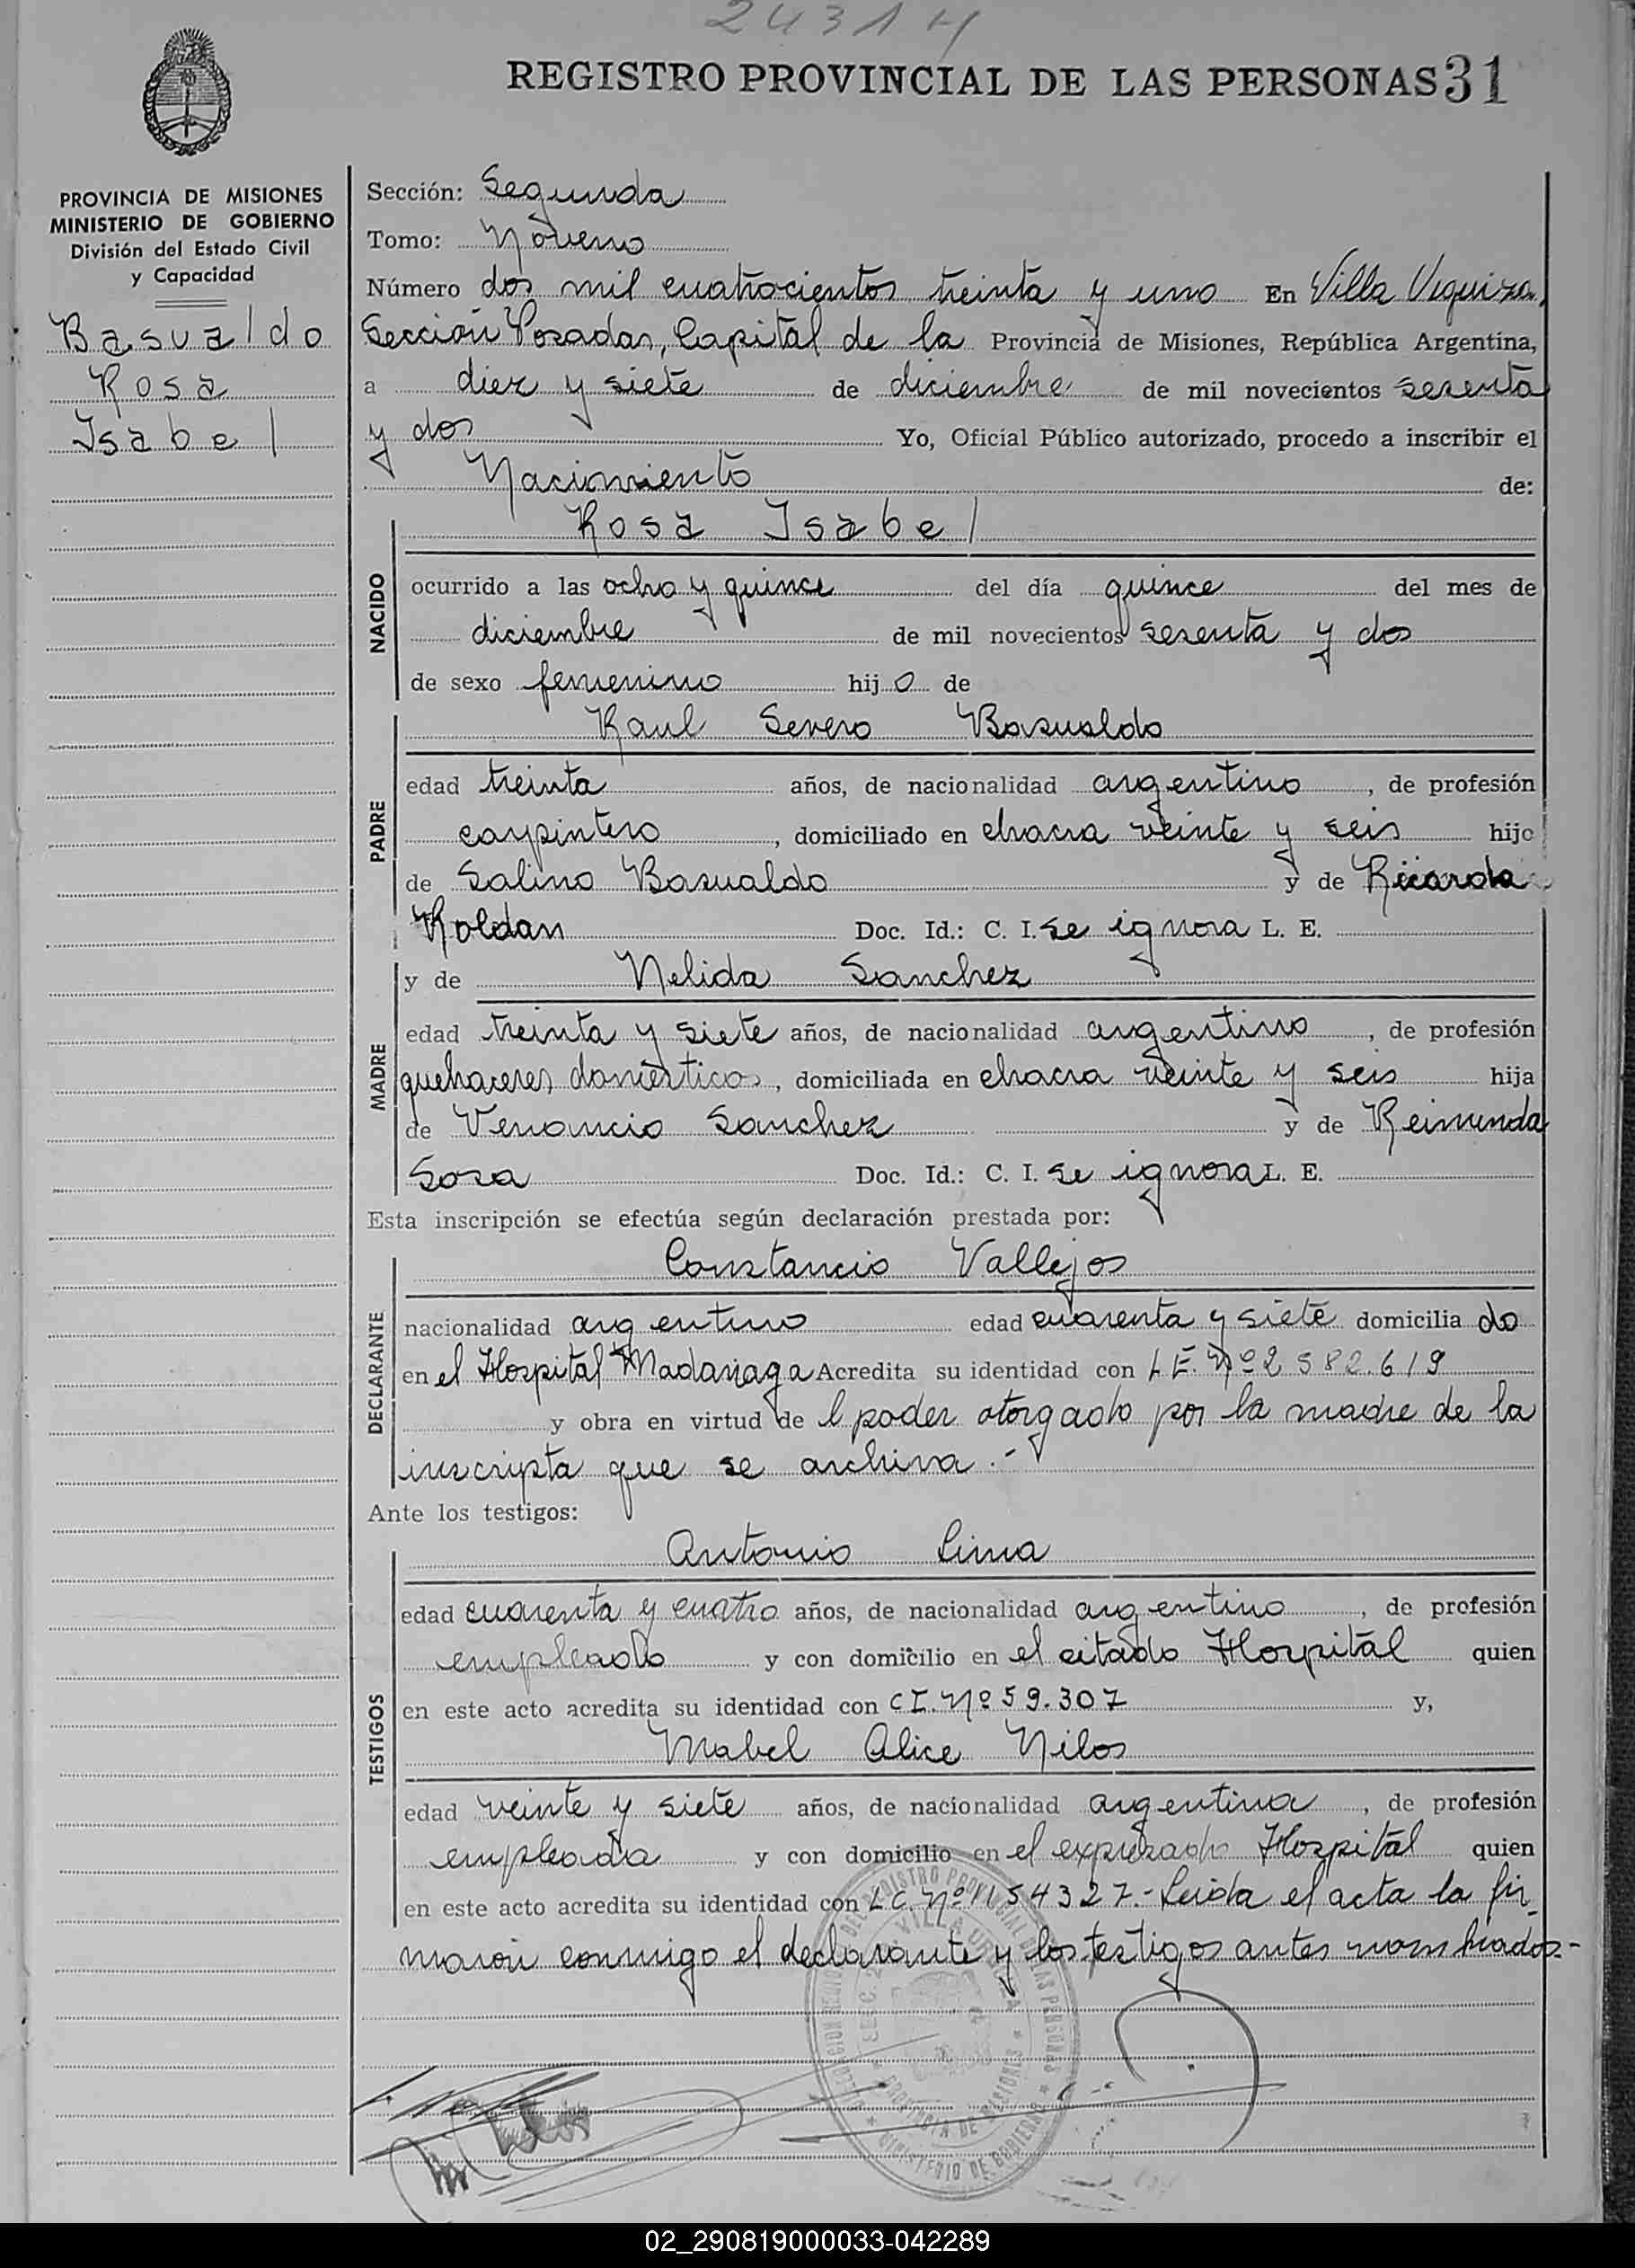 2431 H
REGISTRO PROVINCIAL DE LAS PERSONAS 31
PROVINCIA DE MISIONES
MINISTERIO DE GOBIERNO
División del Estado Civil
y Capacidad
Basualdo
Rosa
Isabel
Sección: Segunda
Tomo: Noveno
Número dos mil cuatrocientos treinta y uno En Villa Urquiza,
Sección Posadas, Capital de la Provincia de Misiones, República Argentina,
a diez y siete de diciembre de mil novecientos sesenta
y dos Yo, Oficial Público autorizado, procedo a inscribir el
Nacimiento de:
NACIDO
Rosa Isabel
ocurrido a las ocho y quince del día quince del mes de
diciembre de mil novecientos sesenta y dos
de sexo femenino hij o de
PADRE
Raul Severo Basualdo
edad treinta años, de nacionalidad argentino, de profesión
carpintero, domiciliado en chacra veinte y seis hijo
de Salino Basualdo y de Ricarda
Roldan Doc. Id.: C. I. se ignora L. E.
MADRE
y de Nelida Sanchez
edad treinta y siete años, de nacionalidad argentino, de profesión
quehaceres domésticos, domiciliada en chacra veinte y seis hija
de Venancio Sanchez y de Reimunda
Sosa Doc. Id.: C. I. se ignora L. E.
Esta inscripción se efectúa según declaración prestada por:
DECLARANTE
Constancio Vallejos
nacionalidad argentino edad cuarenta y siete domicilia do
en el Hospital Madariaga Acredita su identidad con L.E. Nº 2582.619
y obra en virtud de l poder otorgado por la madre de la
inscripta que se archiva.-
Ante los testigos:
TESTIGOS
Antonio Lima
edad cuarenta y cuatro años, de nacionalidad argentino, de profesión
empleado y con domicilio en el citado Hospital quien
en este acto acredita su identidad con C I. Nº 59.307 y,
Mabel Alice Nilos
edad veinte y siete años, de nacionalidad argentina, de profesión
empleada y con domicilio en el expresado Hospital quien
en este acto acredita su identidad con L C. Nº 1154327.- Leida el acta la fir_
maron conmigo el declarante y los testigos antes nombrados.-
02_290819000033-042289